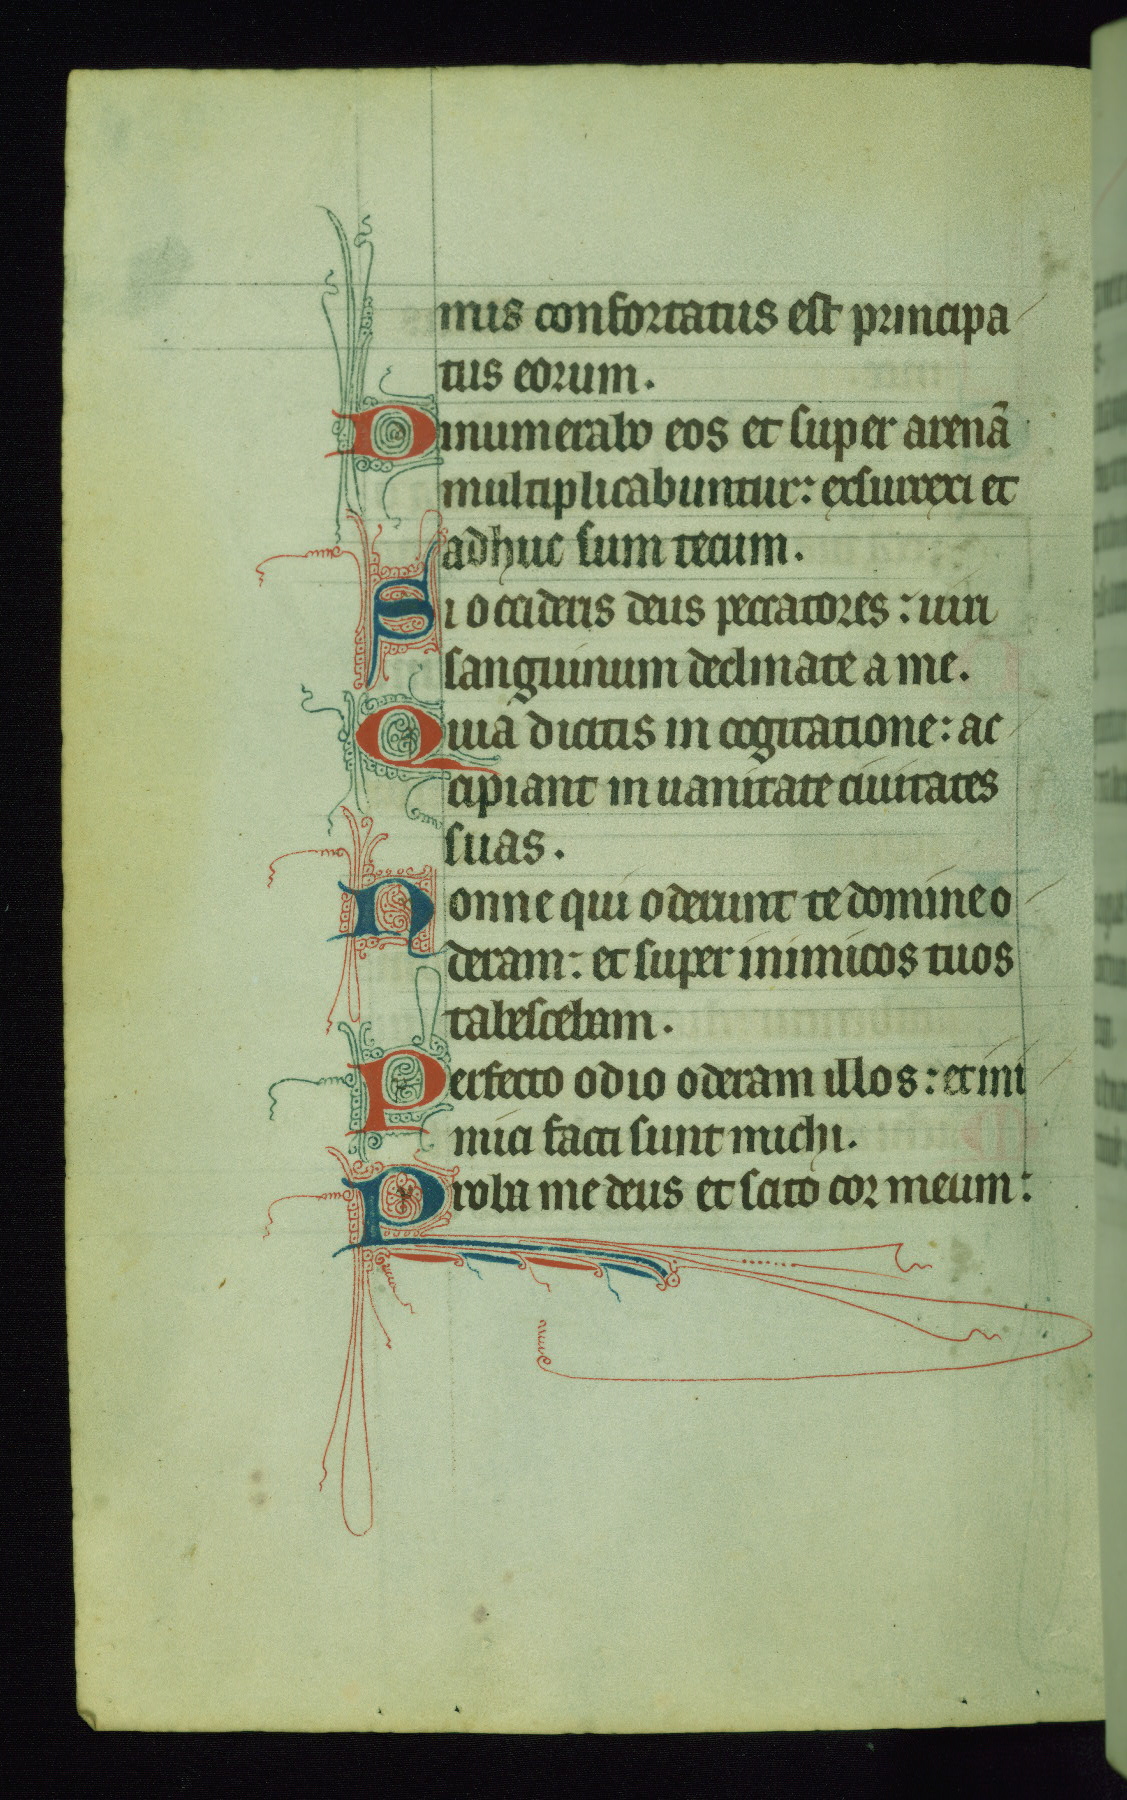 mus confortatus est principa
tus eorum.
Dinumerabo eos et super arenã
multiplicabuntur: exsurrexi et
adhuc sum tecum.
Si occideris deus peccatores: uiri
sanguinum declinate a me.
Quia dicitis in cogitatione: ac
cipiant in uanitate ciuitates
suas.
Nonne qui oderunt te domine o
deram: et super inimicos tuos
tabescebam.
Perfecto odio oderam illos: et ini
mici facti sunt michi.
Proba me deus et scito cor meum: